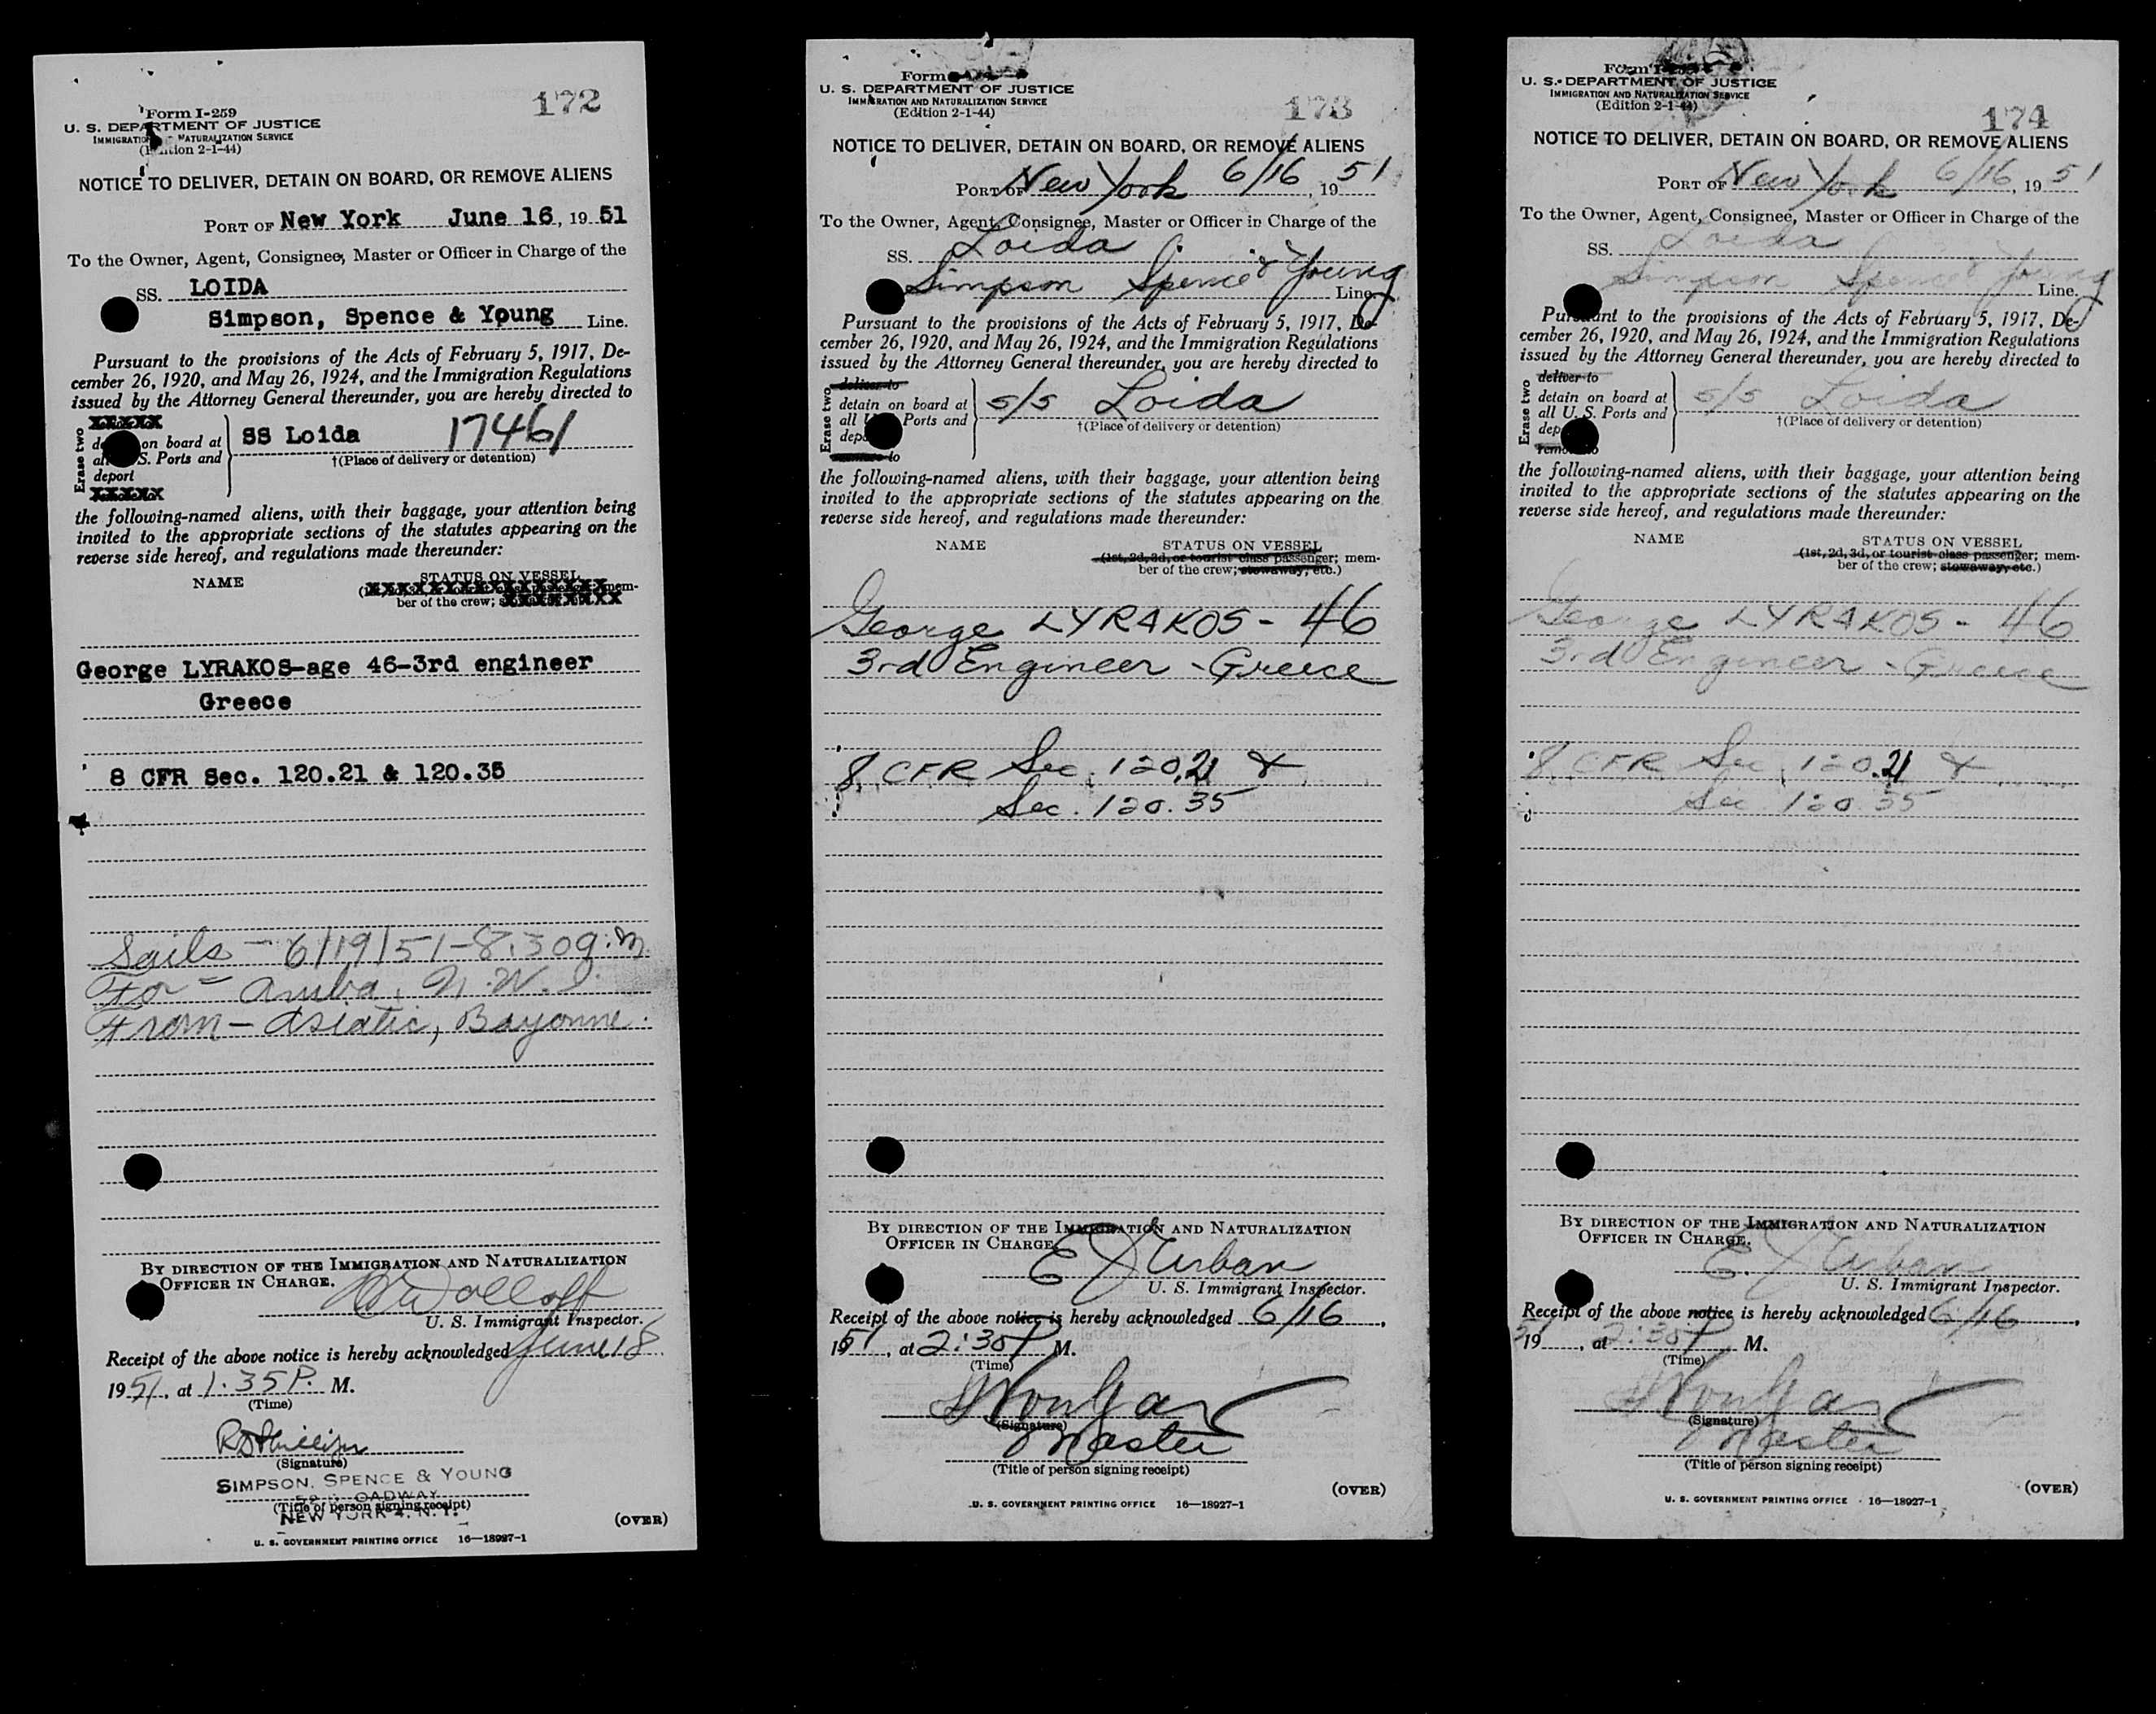 172
Form I-259
U. S. DEPARTMENT OF JUSTICE
IMMIGRATION NATURALIZATION SERVICE
(Edition 2-1-44)
NOTICE TO DELIVER, DETAIN ON BOARD, OR REMOVE ALIENS
PORT OF New York June 16, 19 51
To the Owner, Agent, Consignee, Master or Officer in Charge of the
SS. LOIDA
Simpson, Spence & Young Line.
Pursuant to the provisions of the Acts of February 5, 1917, De-
cember 26, 1920, and May 26, 1924, and the Immigration Regulations
issued by the Attorney General thereunder, you are hereby directed to
Erase two
XXXXX
on board at
S. Ports and
deport
XXXXX
SS Loida 17461
†(Place of delivery or detention)
the following-named aliens, with their baggage, your attention being
invited to the appropriate sections of the statutes appearing on the
reverse side hereof, and regulations made thereunder:
NAME STATUS ON VESSEL
mem-
ber of the crew;
George LYRAKOS-age 46-3rd engineer
Greece
8 CFR Sec. 120.21 & 120.35
Sails - 6/19/51-8:30 a.m.
For - Aruba, N.W.I.
From - Asiatic, Bayonne.
BY DIRECTION OF THE IMMIGRATION AND NATURALIZATION
OFFICER IN CHARGE.
U. S. Immigrant Inspector.
Receipt of the above notice is hereby acknowledged June 18
19 51, at 1:35 P. M.
(Time)
(Signature)
SIMPSON, SPENCE & YOUNG
(Title of person signing receipt)
NEW YORK 4, N. Y.
(OVER)
U. S. GOVERNMENT PRINTING OFFICE 16—18927-1
173
Form
U. S. DEPARTMENT OF JUSTICE
IMMIGRATION AND NATURALIZATION SERVICE
(Edition 2-1-44)
NOTICE TO DELIVER, DETAIN ON BOARD, OR REMOVE ALIENS
PORT OF New York 6/16, 19 51
To the Owner, Agent, Consignee, Master or Officer in Charge of the
SS. Loida
Simpson Spence & Young Line.
Pursuant to the provisions of the Acts of February 5, 1917, De-
cember 26, 1920, and May 26, 1924, and the Immigration Regulations
issued by the Attorney General thereunder, you are hereby directed to
Erase two
deliver to
detain on board at
all U Ports and
dep
remove to
s/s Loida
†(Place of delivery or detention)
the following-named aliens, with their baggage, your attention being
invited to the appropriate sections of the statutes appearing on the
reverse side hereof, and regulations made thereunder:
NAME STATUS ON VESSEL
(1st, 2d, 3d, or tourist class passenger; mem-
ber of the crew; stowaway, etc.)
George LYRAKOS - 46
3rd Engineer - Greece
8 CFR Sec. 120.21 &
Sec. 120.35
BY DIRECTION OF THE IMMIGRATION AND NATURALIZATION
OFFICER IN CHARGE.
E J Urban
U. S. Immigrant Inspector.
Receipt of the above notice is hereby acknowledged 6/16,
19 51, at 2:30 P M.
(Time)
(Signature)
Master
(Title of person signing receipt)
(OVER)
U. S. GOVERNMENT PRINTING OFFICE 16—18927-1
174
Form I-259
U. S. DEPARTMENT OF JUSTICE
IMMIGRATION AND NATURALIZATION SERVICE
(Edition 2-1-44)
NOTICE TO DELIVER, DETAIN ON BOARD, OR REMOVE ALIENS
PORT OF New York 6/16, 19 51
To the Owner, Agent, Consignee, Master or Officer in Charge of the
SS. Loida
Simpson Spence & Young Line.
Pursuant to the provisions of the Acts of February 5, 1917, De-
cember 26, 1920, and May 26, 1924, and the Immigration Regulations
issued by the Attorney General thereunder, you are hereby directed to
Erase two
deliver to
detain on board at
all U. S. Ports and
dep
remove to
s/s Loida
†(Place of delivery or detention)
the following-named aliens, with their baggage, your attention being
invited to the appropriate sections of the statutes appearing on the
reverse side hereof, and regulations made thereunder:
NAME STATUS ON VESSEL
(1st, 2d, 3d, or tourist class passenger; mem-
ber of the crew; stowaway, etc.)
George LYRAKOS - 46
3rd Engineer - Greece
8 CFR Sec. 120.21 &
Sec 120.35
BY DIRECTION OF THE IMMIGRATION AND NATURALIZATION
OFFICER IN CHARGE.
E. J Urban
U. S. Immigrant Inspector.
Receipt of the above notice is hereby acknowledged 6/16,
51
19, at 2:30 P M.
(Time)
(Signature)
Master
(Title of person signing receipt)
(OVER)
U. S. GOVERNMENT PRINTING OFFICE 16—18927-1